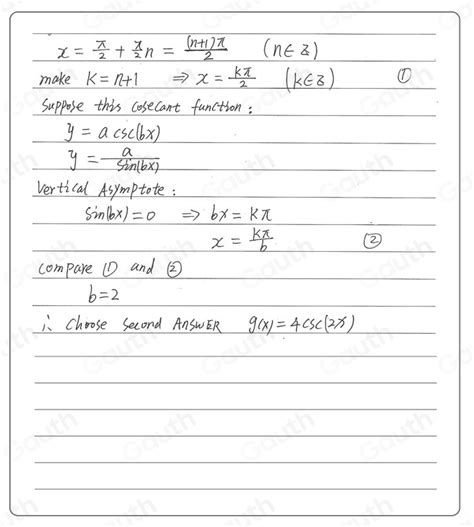 x = π/2 + π/2 n = (n+1)π/2 (n∈Z)
make K = n+1 ⇒ x = kπ/2 (k∈Z) ①
Suppose this cosecant function :
y = a csc(bx)
y = a/sin(bx)
Vertical Asymptote :
Sin(bx) = 0 ⇒ bx = Kπ
x = kπ/b ②
compare ① and ②
b=2
∴ Choose Second ANSWER g(x) = 4csc(2x)
Gauth